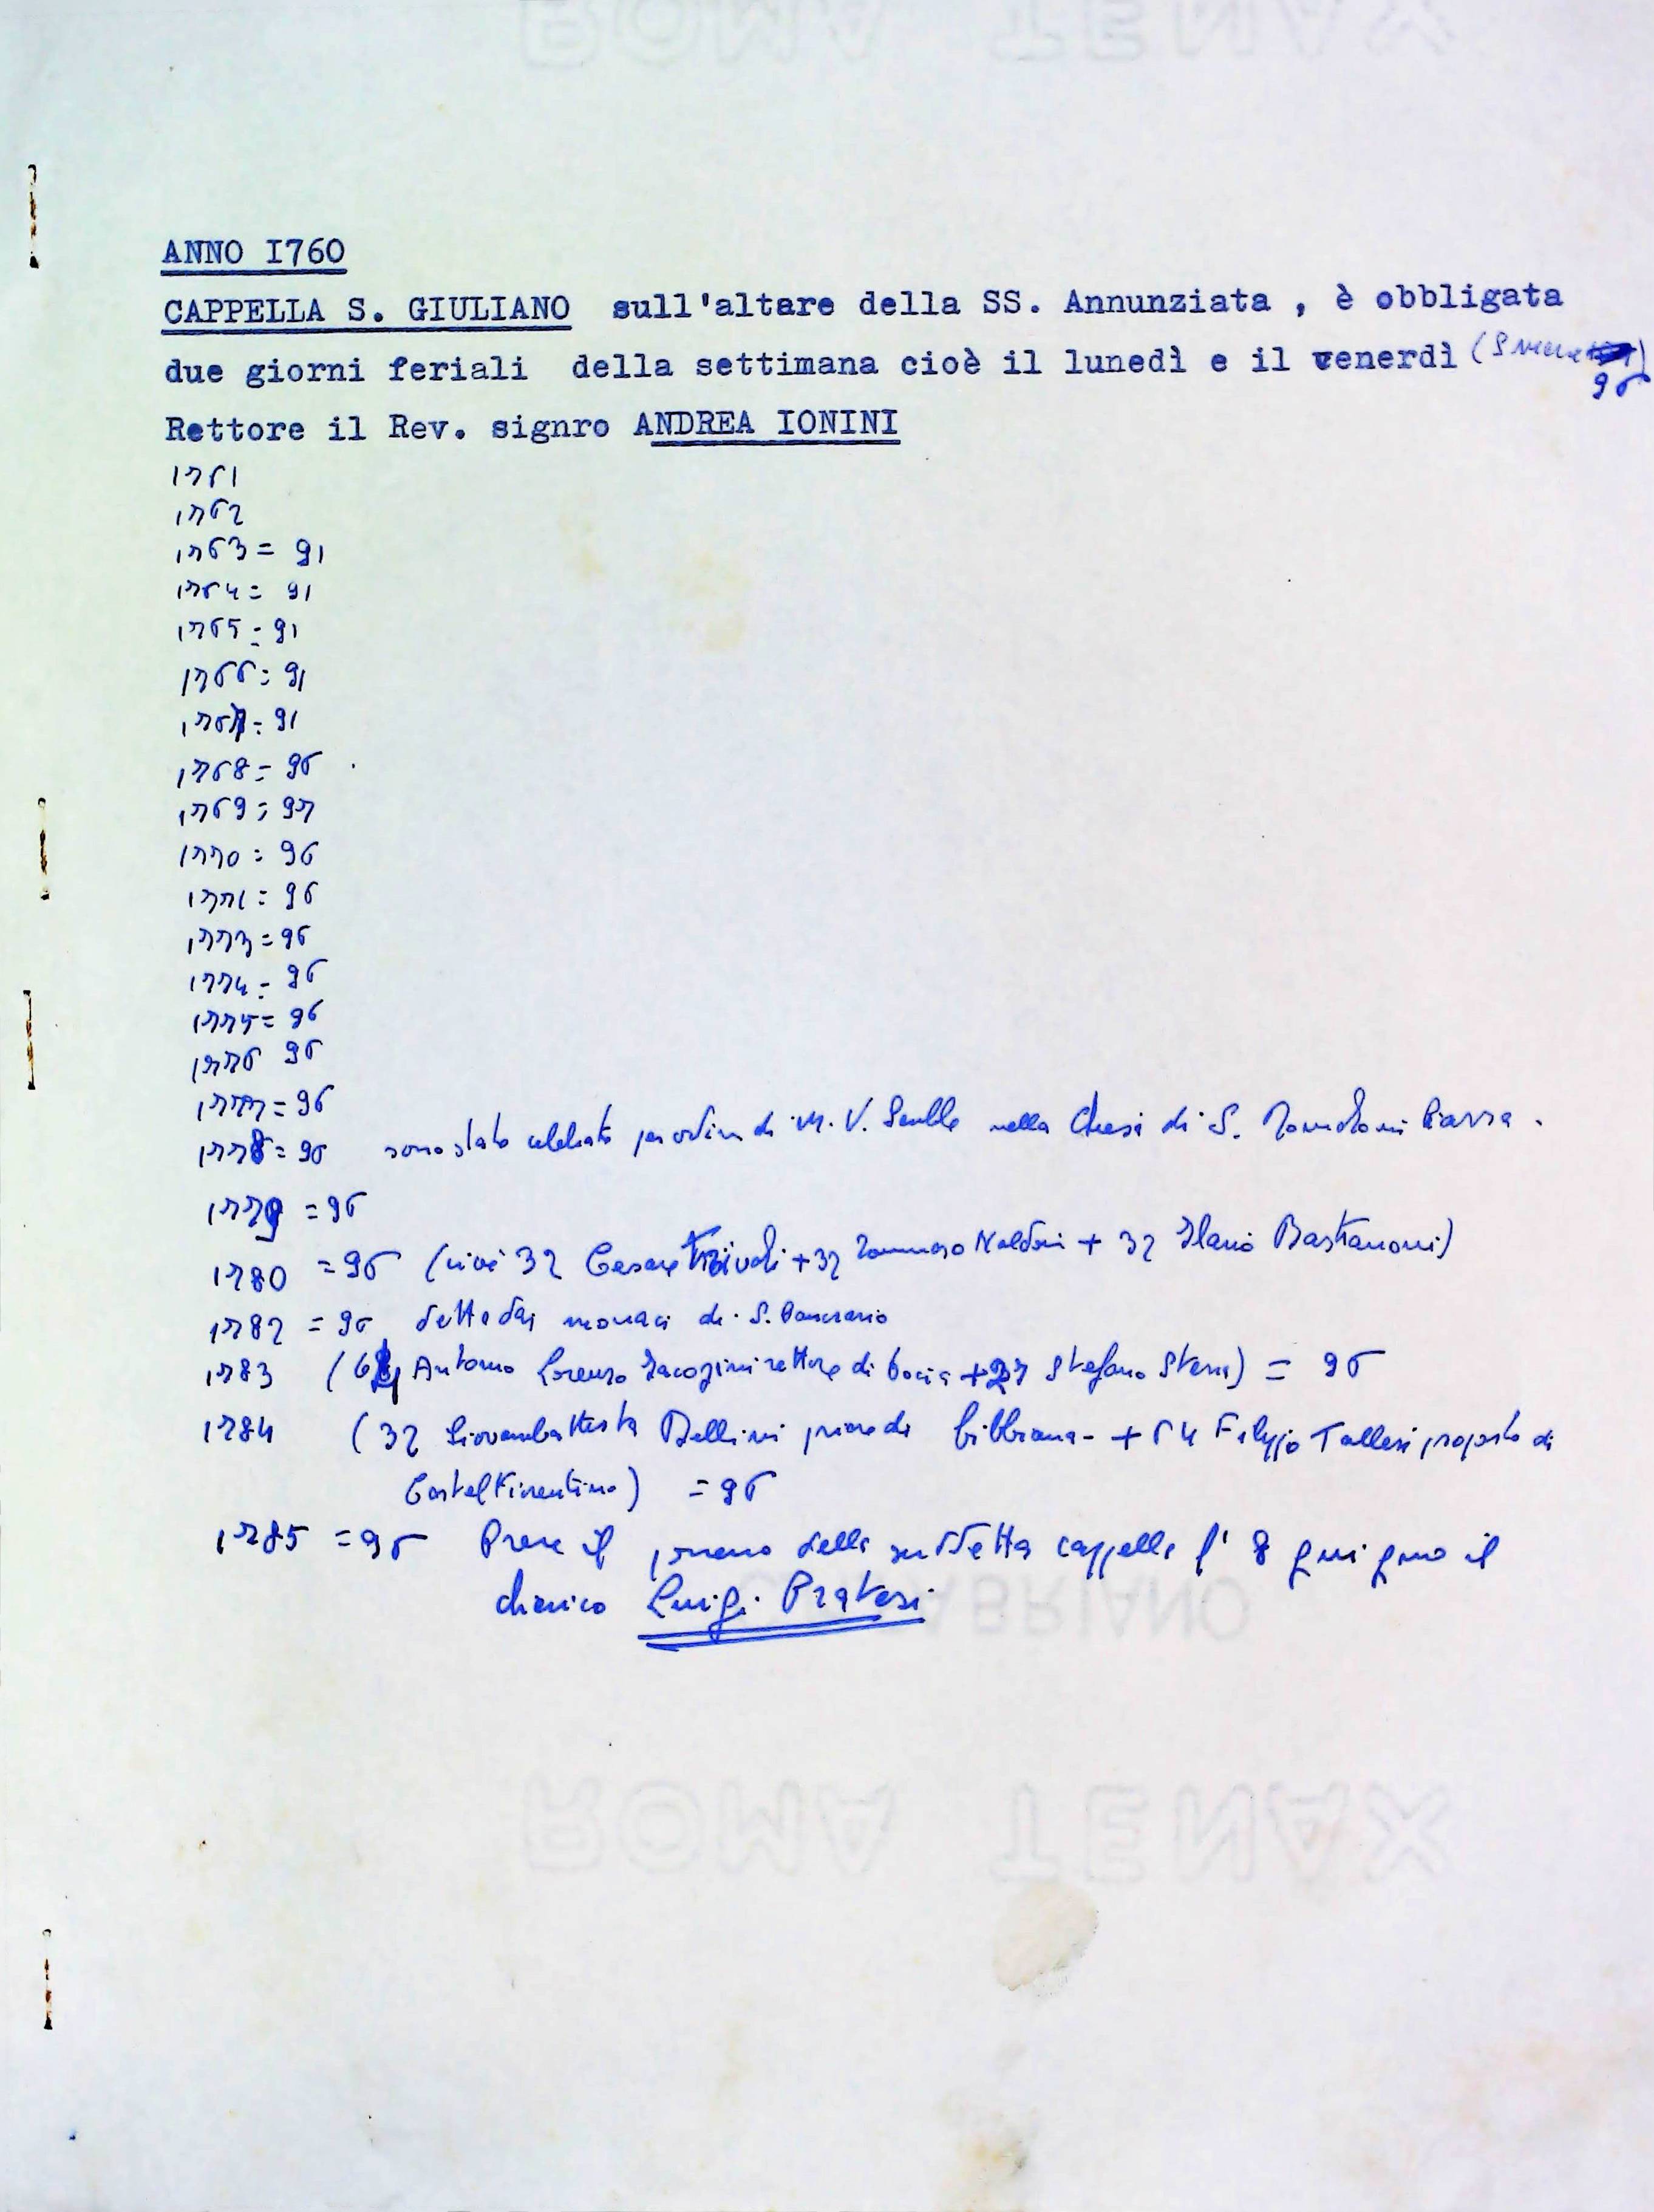 ROMA TENAX
ANNO I760
CAPPELLA S. GIULIANO sull'altare della SS. Annunziata , è obbligata
due giorni feriali della settimana cioè il lunedì e il venerdì (
96
Rettore il Rev. signro ANDREA IONINI
1761
1762
1763 = 91
1764 = 91
1765 = 91
1766 = 91
1767 = 91
1768 = 96
1769 = 97
1770 = 96
1771 = 96
1773 = 96
1774 = 96
1775 = 96
1776 96
1777 = 96
1778 = 96 sono state celebrate per ordine di M. V. nella Chiesa di S. Piazza .
1779 = 96
1780 = 96 (cioè 32 Cesare Trivoli + 32 Tommaso Naldoni + 32 Ilario Bastianoni)
1782 = 96 dette dai monaci di S. Pancrazio
1783 ( Antonio Lorenzo rettore di + Stefano ) = 96
1784 (32 Giovambattista Bellini priore di Bibbiana - + 64 Filippo Tallesi proposto di
Castelfiorentino) = 96
1785 = 96 Prese il della suddetta cappella l' 8 giugno il
chierico Luigi Pratesi
FABRIANO
ROMA TENAX